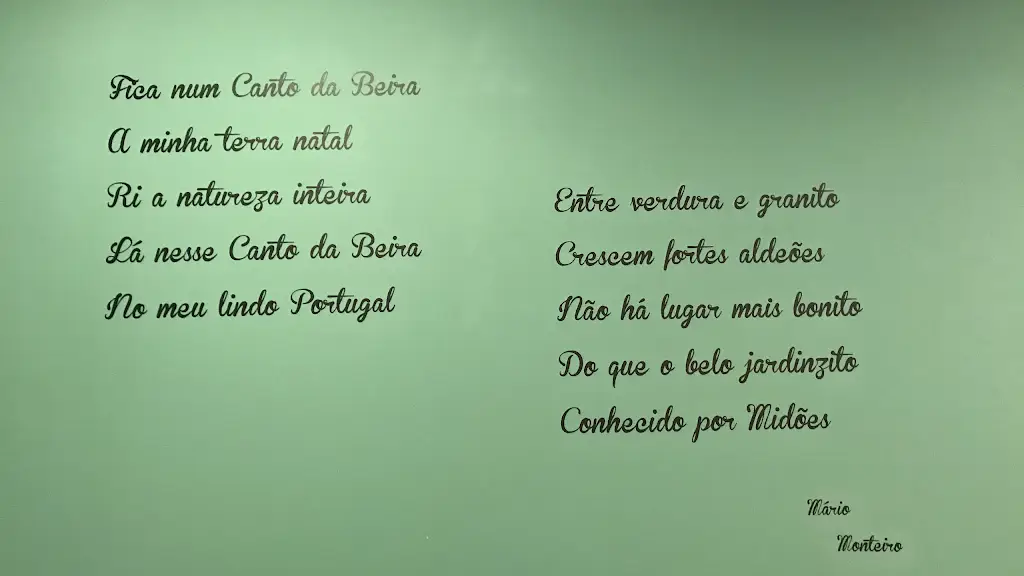 Fica num Canto da Beira
A minha terra natal
Ri a natureza inteira
Lá nesse Canto da Beira
No meu lindo Portugal
Entre verdura e granito
Crescem fortes aldeões
Não há lugar mais bonito
Do que o belo jardinzito
Conhecido por Midões
Mário
Monteiro